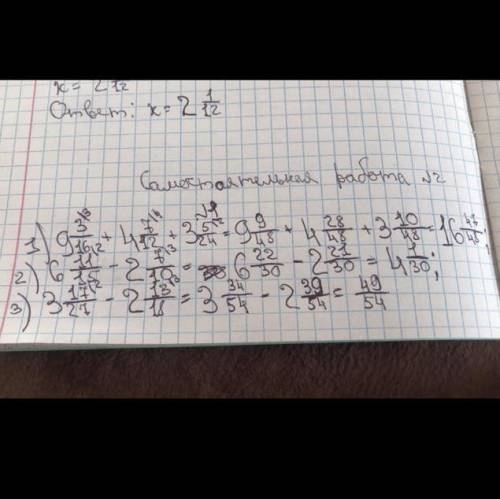 x = 2 1/12
Ответ: x = 2 1/12
Самостоятельная работа №2
№1
1) 9 3/16 + 4 7/12 + 3 5/24 = 9 9/48 + 4 28/48 + 3 10/48 = 16 47/48;
2) 6 11/15 - 2 7/10 = 6 22/30 - 2 21/30 = 4 1/30;
3) 3 17/27 - 2 13/18 = 3 34/54 - 2 39/54 = 49/54